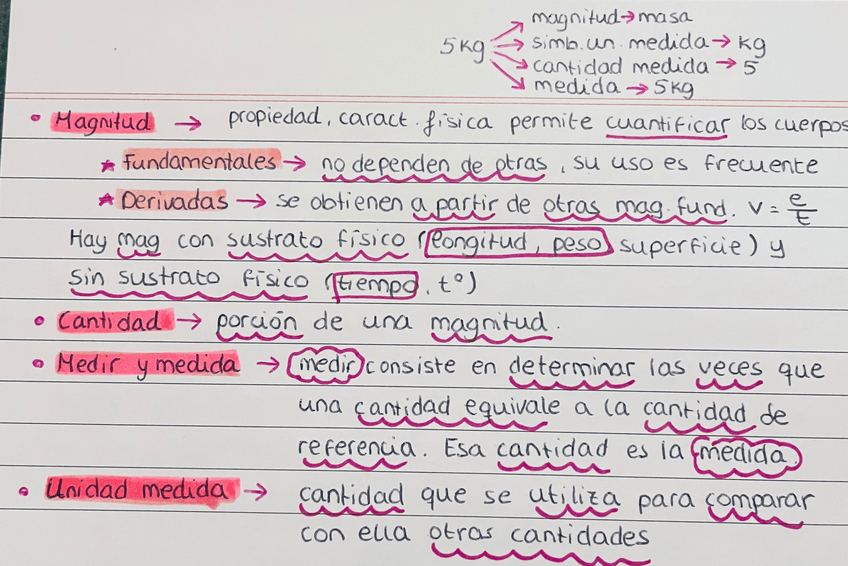 magnitud → masa
5Kg → simb. un. medida → kg
cantidad medida → 5
medida → 5Kg
• Magnitud → propiedad, caract. física permite cuantificar los cuerpos
* Fundamentales → no dependen de otras, su uso es frecuente
* Derivadas → se obtienen a partir de otras mag. fund. v = e/t
Hay mag con sustrato físico (longitud, peso, superficie) y
sin sustrato físico (tiempo, tº)
• Cantidad → porción de una magnitud.
• Medir y medida → medir consiste en determinar las veces que
una cantidad equivale a la cantidad de
referencia. Esa cantidad es la medida.
• Unidad medida → cantidad que se utiliza para comparar
con ella otras cantidades